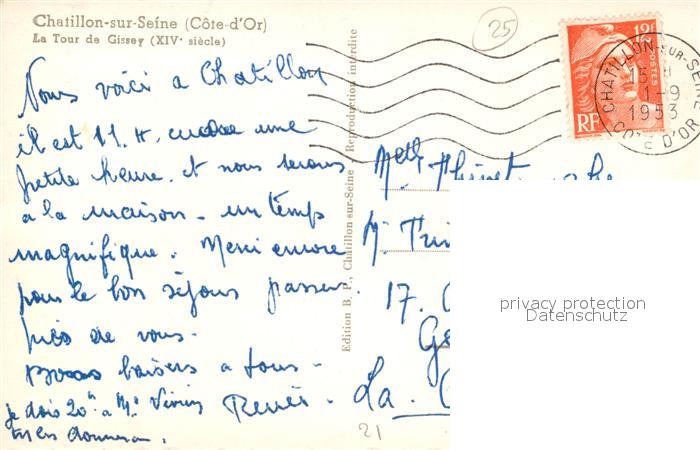 Chatillon-sur-Seine (Côte-d'Or)
La Tour de Gissey (XIVe siècle)
25
Nous voici a Chatillon
il est 11.H. encore une
petite heure et nous serons
a la maison - un temps
magnifique. Merci encore
pour le bon séjour passer
près de vous.
Bons baisers a tous.
Renée.
je dois 20 a
tu les donneras.
21
Edition B. P., Chatillon-sur-Seine Reproduction interdite
12F
POSTES
RF
CHATILLON-SUR-SEINE
15 H
1-9
1953
COTE D'OR
M.
17.
La
privacy protection
Datenschutz